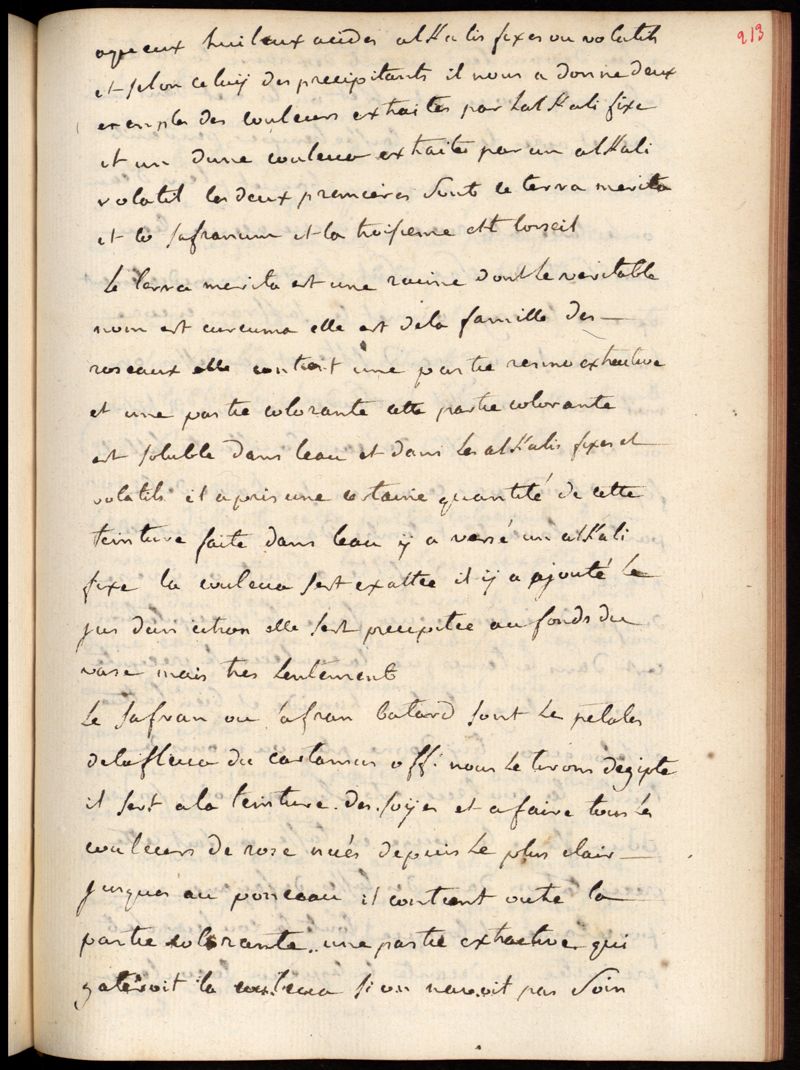 213
aqueux huileux acides alkalis fixes ou volatils
et selon celuy des precipitants il nous a donné deux
exemples des couleurs extraites par lalkali fixe
et un dune couleur extraite par un alkali
volatil les deux premieres sont le terra merita
et le safranum et la troisieme est lorseil
Le terra merita est une racine dont le veritable
nom est curcuma elle est de la famille des
roseaux elle contient une partie resino extractive
et une partie colorante cette partie colorante
est soluble dans leau et dans les alkalis fixes et
volatils il a pris une certaine quantité de cette
teinture faite dans leau ÿ a versé un alkali
fixe la couleur sest exaltee il ÿ a ajouté le
jus dun citron elle sest precipitee au fonds du
vase mais tres lentement
Le safran ou safran batard sont les petales
de la fleur du cartamus off: nous le tirons degipte
il sert a la teinture des soÿes et a faire tous les
couleurs de rose nués depuis le plus clair
jusques au ponceau il contient outre la
partie colorante une partie extractive qui
gateroit la couleur si on navoit pas soin